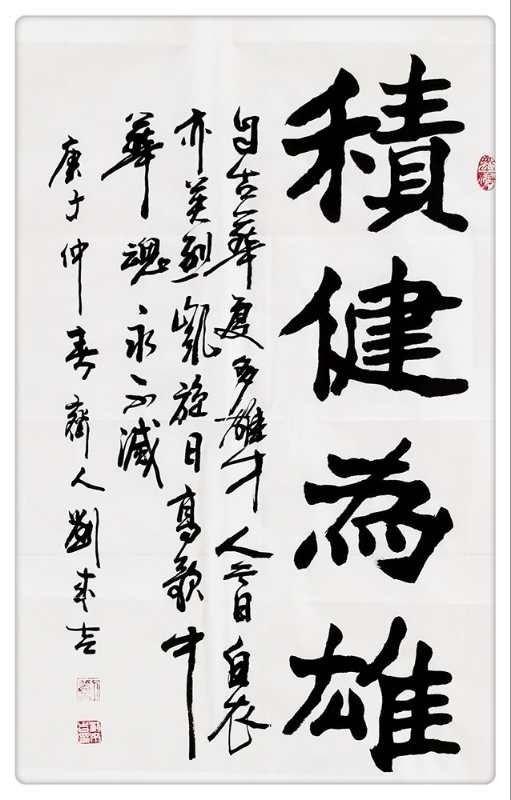 積健為雄
自古華夏多雄才人云白衣
亦英烈凱旋日高歌中
華魂永不滅
庚子仲春齊人劉成吉